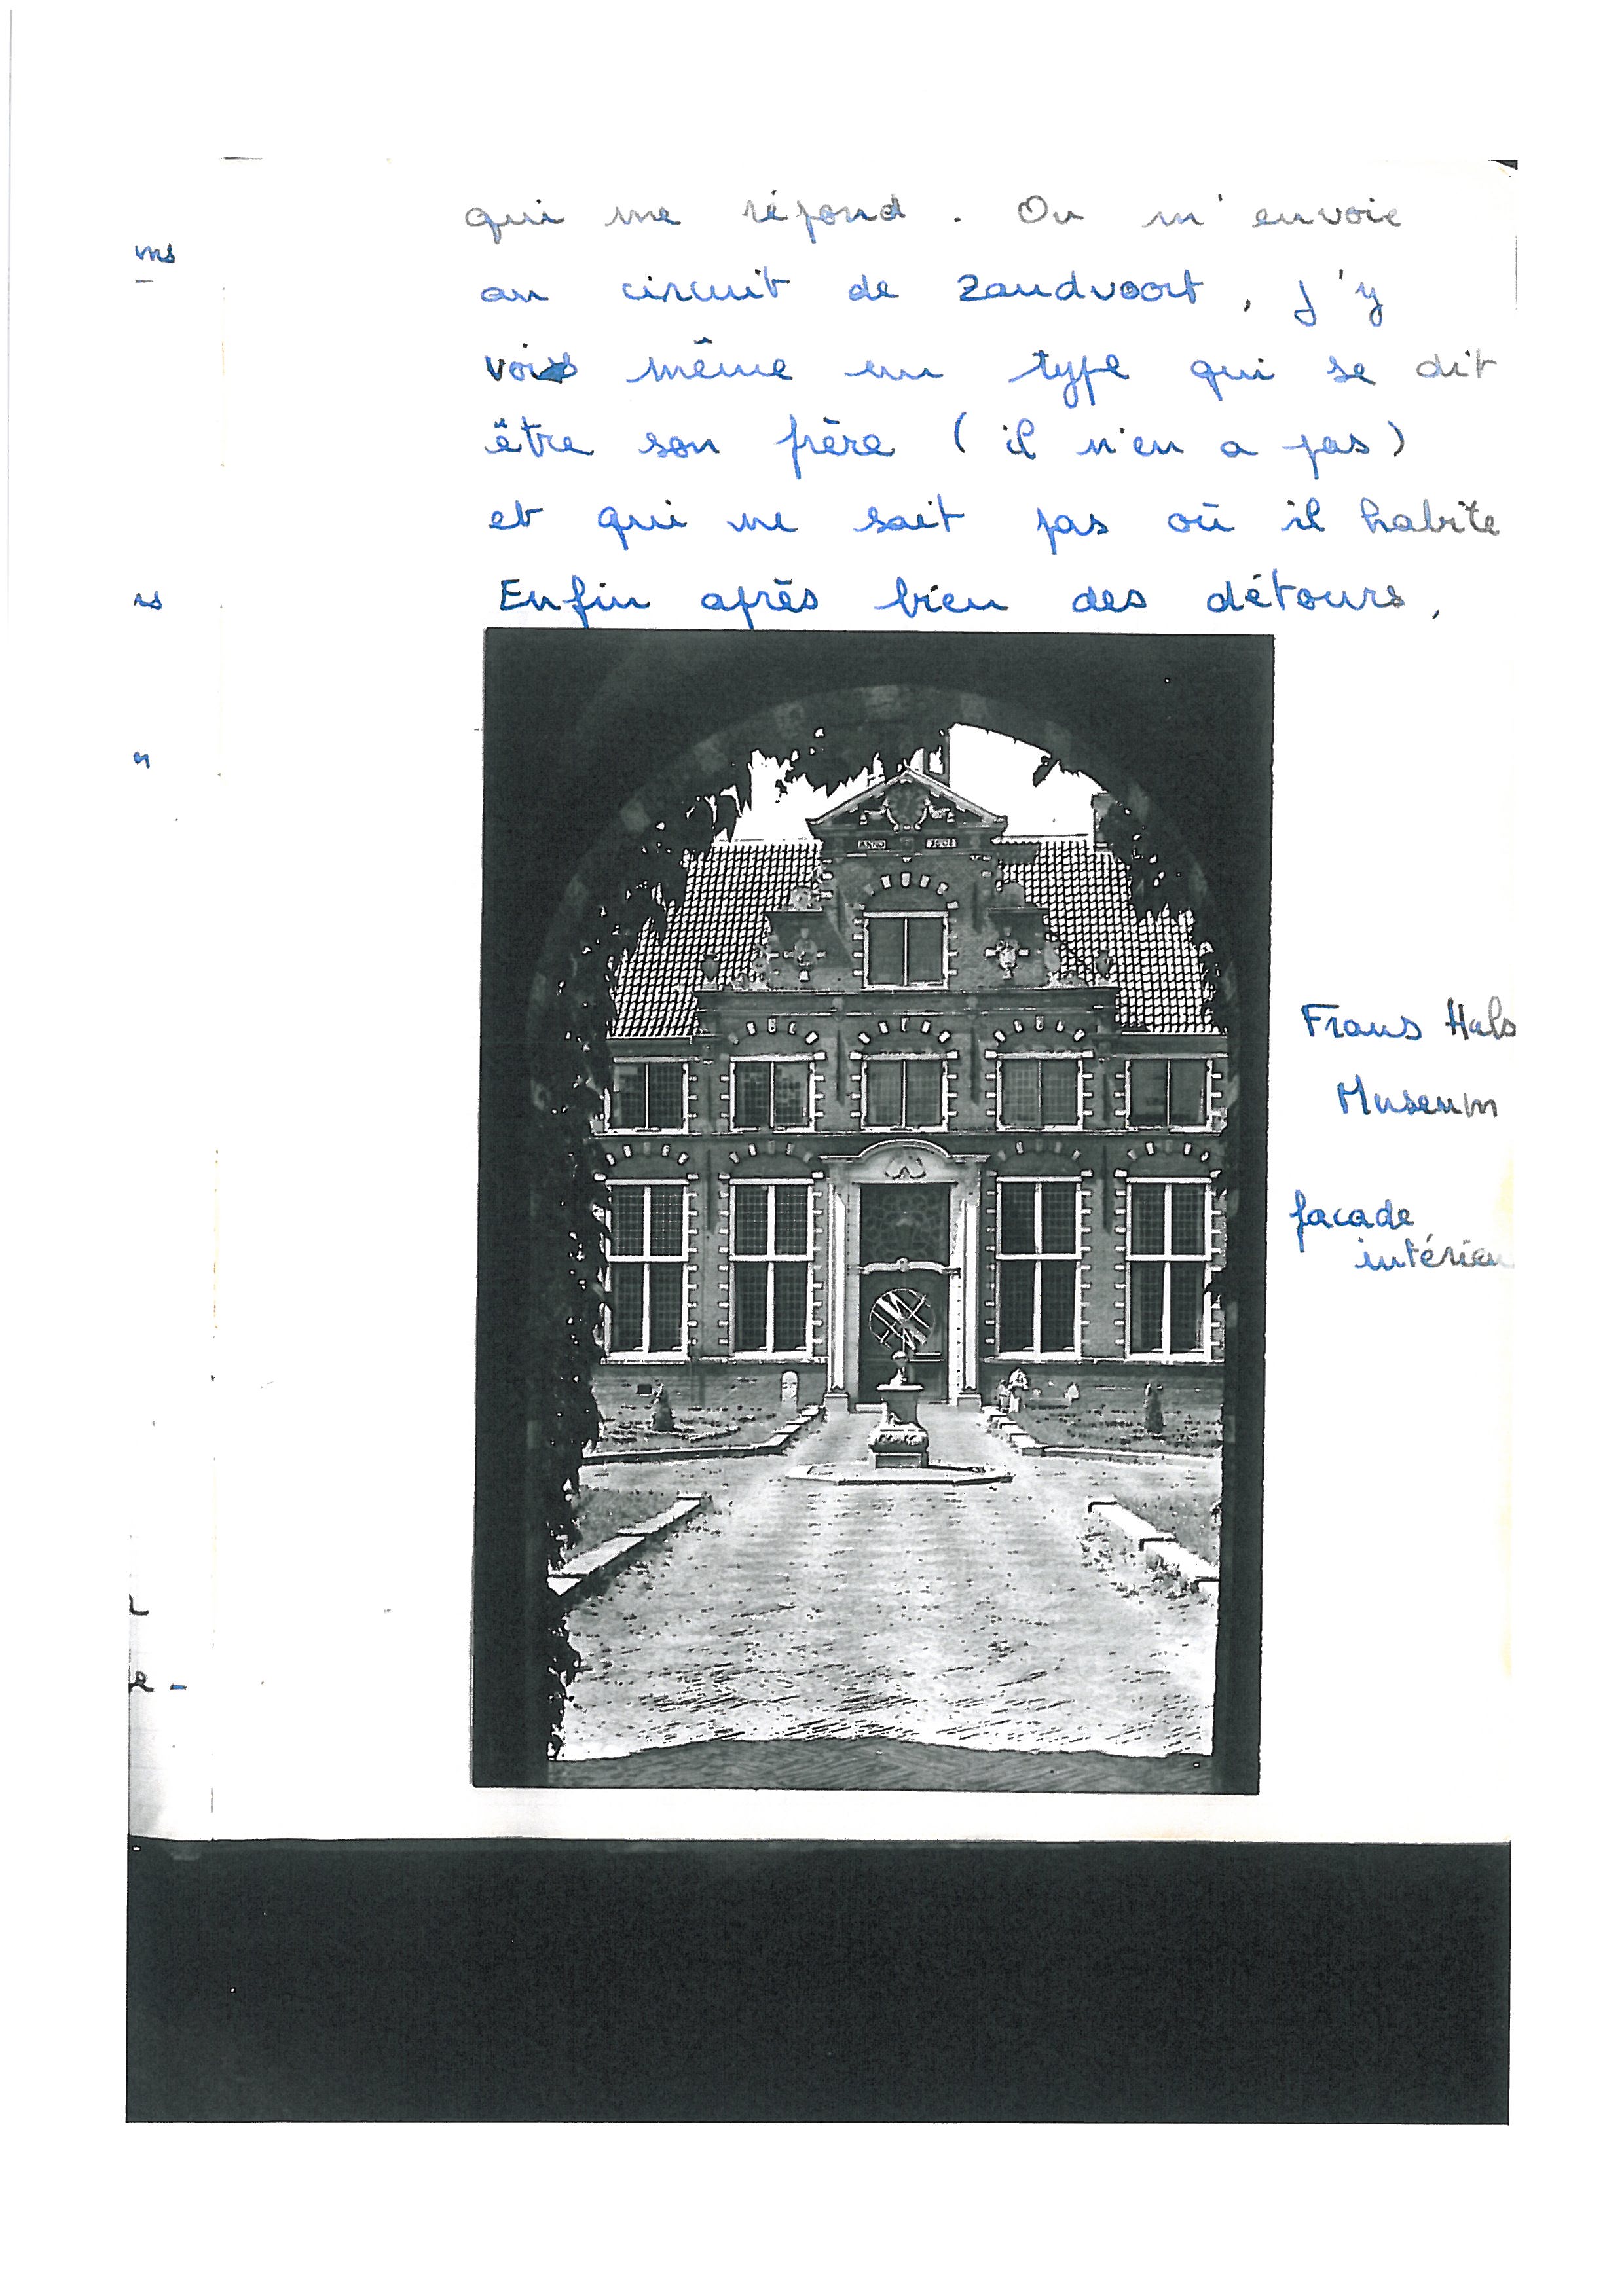 qui me répond. On m'envoie
au circuit de Zandvoort, j'y
vois même un type qui se dit
être son frère (il n'en a pas)
et qui ne sait pas où il habite
Enfin après bien des détours,
ANNO
Frans Hals
Museum
facade
intérieu